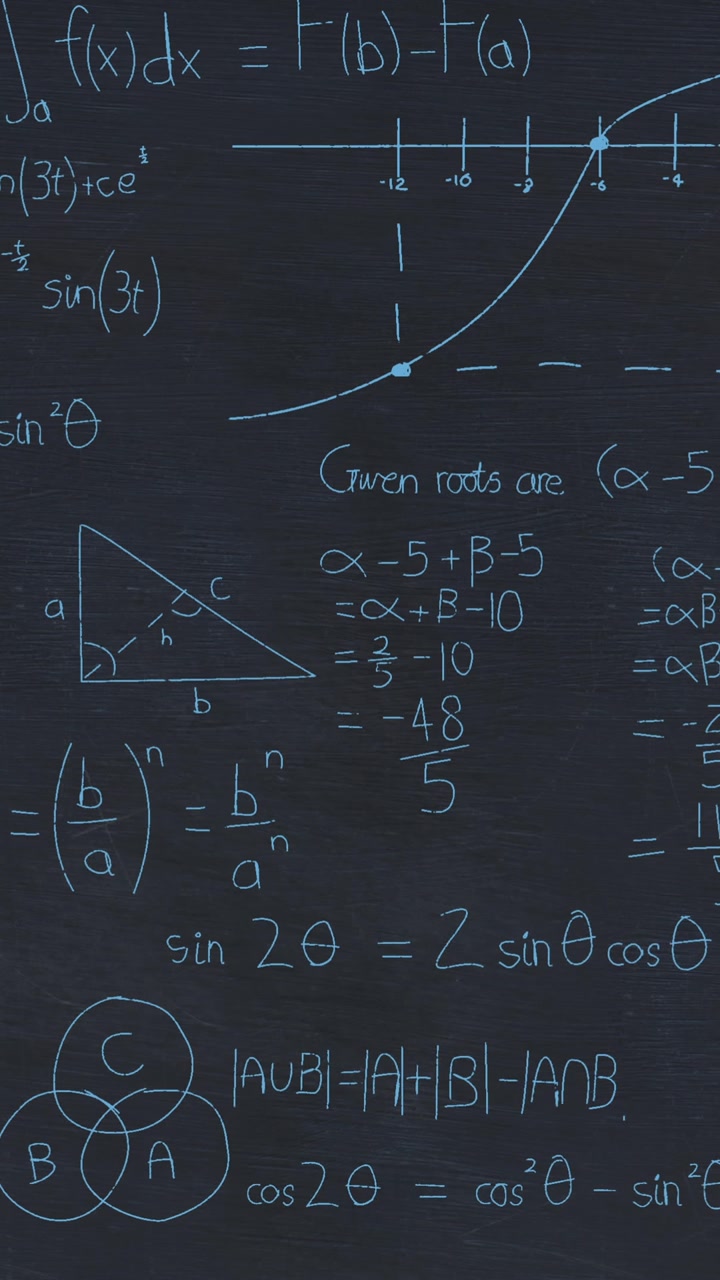 ∫ₐ f(x)dx = F(b)-F(a)
-12 -10 -8 -6 -4
n(3t)+ce^(t/2)
-t/2 sin(3t)
sin²θ
Given roots are (α-5
α-5+β-5
=α+β-10
=2/5-10
=-48/5
(α-
=αβ
=αβ
a
c
h
b
=(b/a)ⁿ=bⁿ/aⁿ
sin 2θ = 2 sinθ cosθ
C
B
A
|A∪B|=|A|+|B|-|A∩B
cos2θ = cos²θ - sin²θ